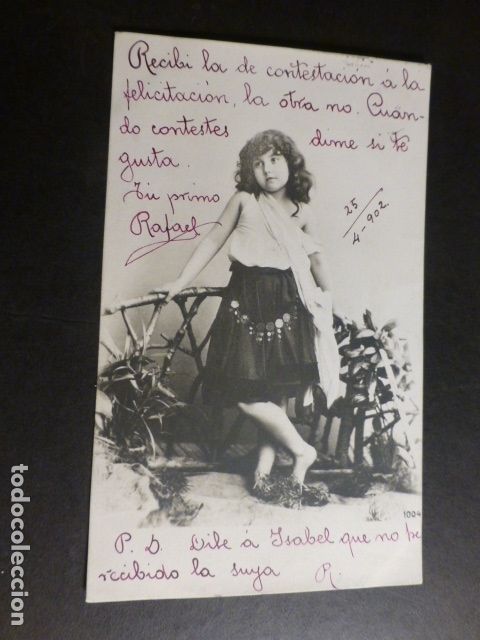 Recibi la de contestación á la
felicitación, la otra no. Cuan-
do contestes dime si te
gusta.
Tu primo
Rafael
25
4-902.
1004
P. D. Dile á Isabel que no he
recibido la suya R.
todocoleccion
todocoleccion.net